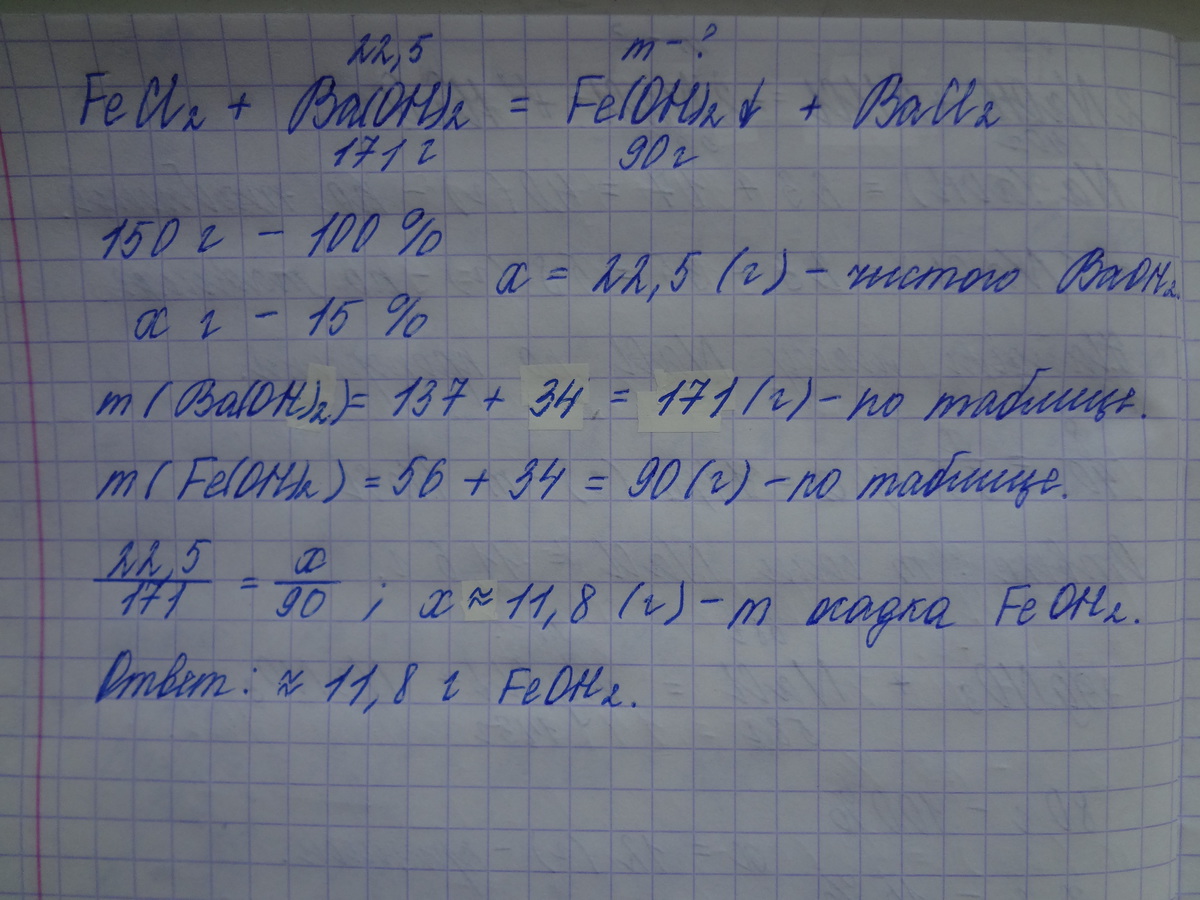 22,5 m - ?
FeCl₂ + Ba(OH)₂ = Fe(OH)₂↓ + BaCl₂
171 г 90 г
150 г - 100 %
x = 22,5 (г) - чистого BaOH₂.
x г - 15 %
m ( Ba(OH)₂) = 137 + 34 = 171 (г) - по таблице.
m ( Fe(OH)₂ ) = 56 + 34 = 90 (г) - по таблице.
22,5/171 = x/90 ; x ≈ 11,8 (г) - m осадка FeOH₂.
Ответ: ≈ 11,8 г FeOH₂.